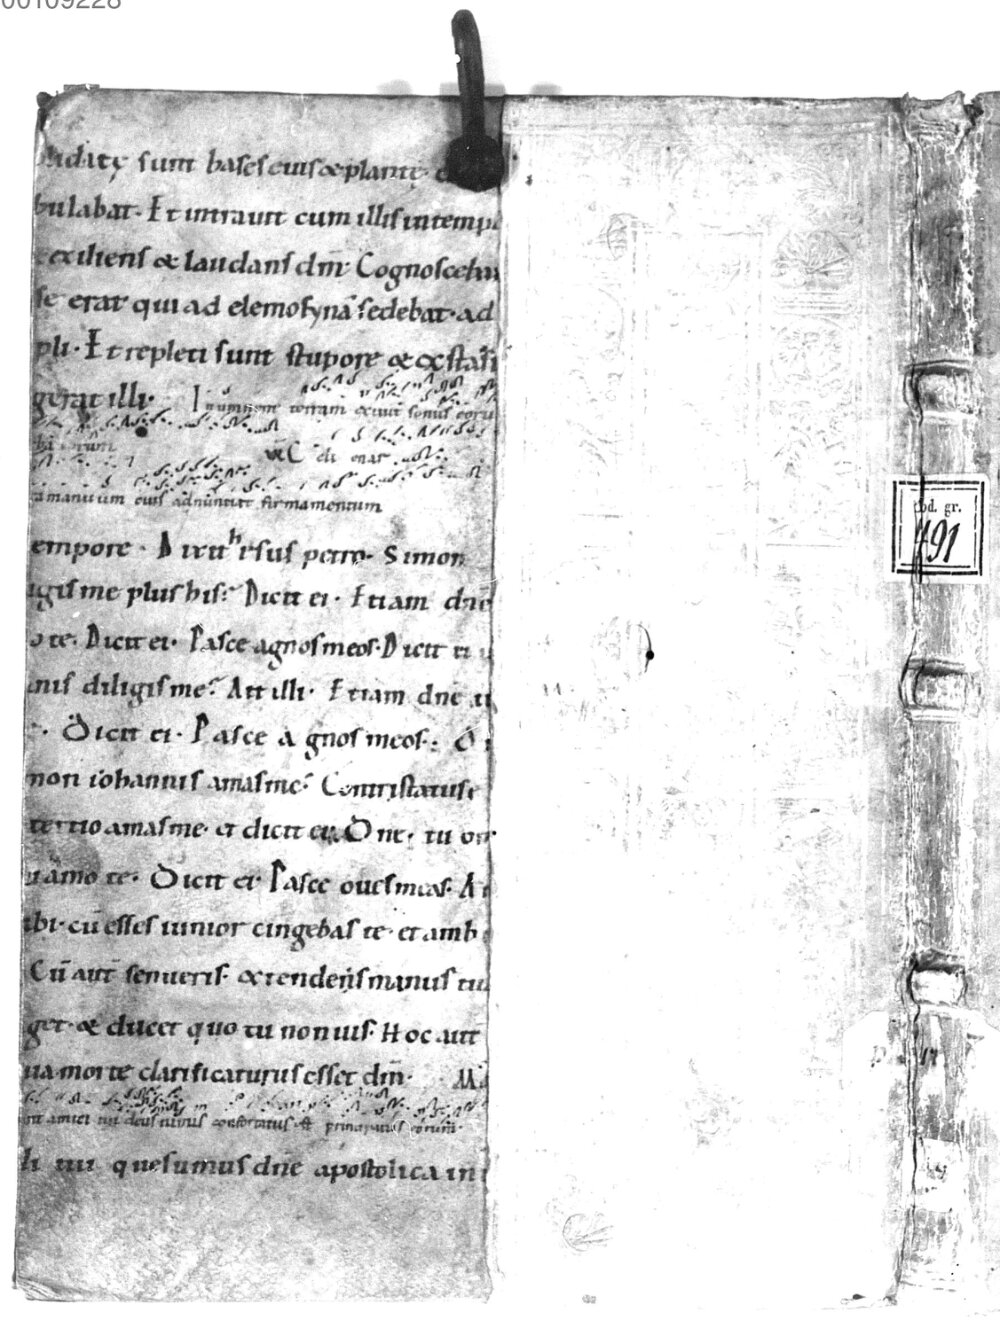 00109228
lidatę sunt bases eius & plantę
bulabat. Et intrauit cum illis in temp
exiliens & laudans dm̄. Cognoscebant
se erat qui ad elemosynā sedebat. ad
pli. Et repleti sunt stupore & extasi
gerat illi. In omnem terram exiuit sonus eoru
bi terrae ṽ Celi enar
a manuum eius adnuntiat firmamentum
empore. Dixit ihs̄us petro. Simon
igis me plus his? Dicit ei. Etiam dn̄e
o te. Dicit ei. Pasce agnos meos. Dicit ei
nnis diligis me? Ait illi. Etiam dn̄e tu
Dicit ei. Pasce agnos meos. D
mon iohannis amas me? Contristatus e
tertio amas me. et dicit ei. Dn̄e. tu om
a amo te. Dicit ei. Pasce oues meas. A
ibi. cū esses iunior cingebas te. et amb
Cū aut̄ senueris. extendens manus tu
get. & ducet quo tu non uis. Hoc aut̄
ua morte clarificaturus esset dm̄. M
amici tui deus nimis confortatus est principatus eorum.
quęsumus dn̄e apostolica in
Cod. gr.
491